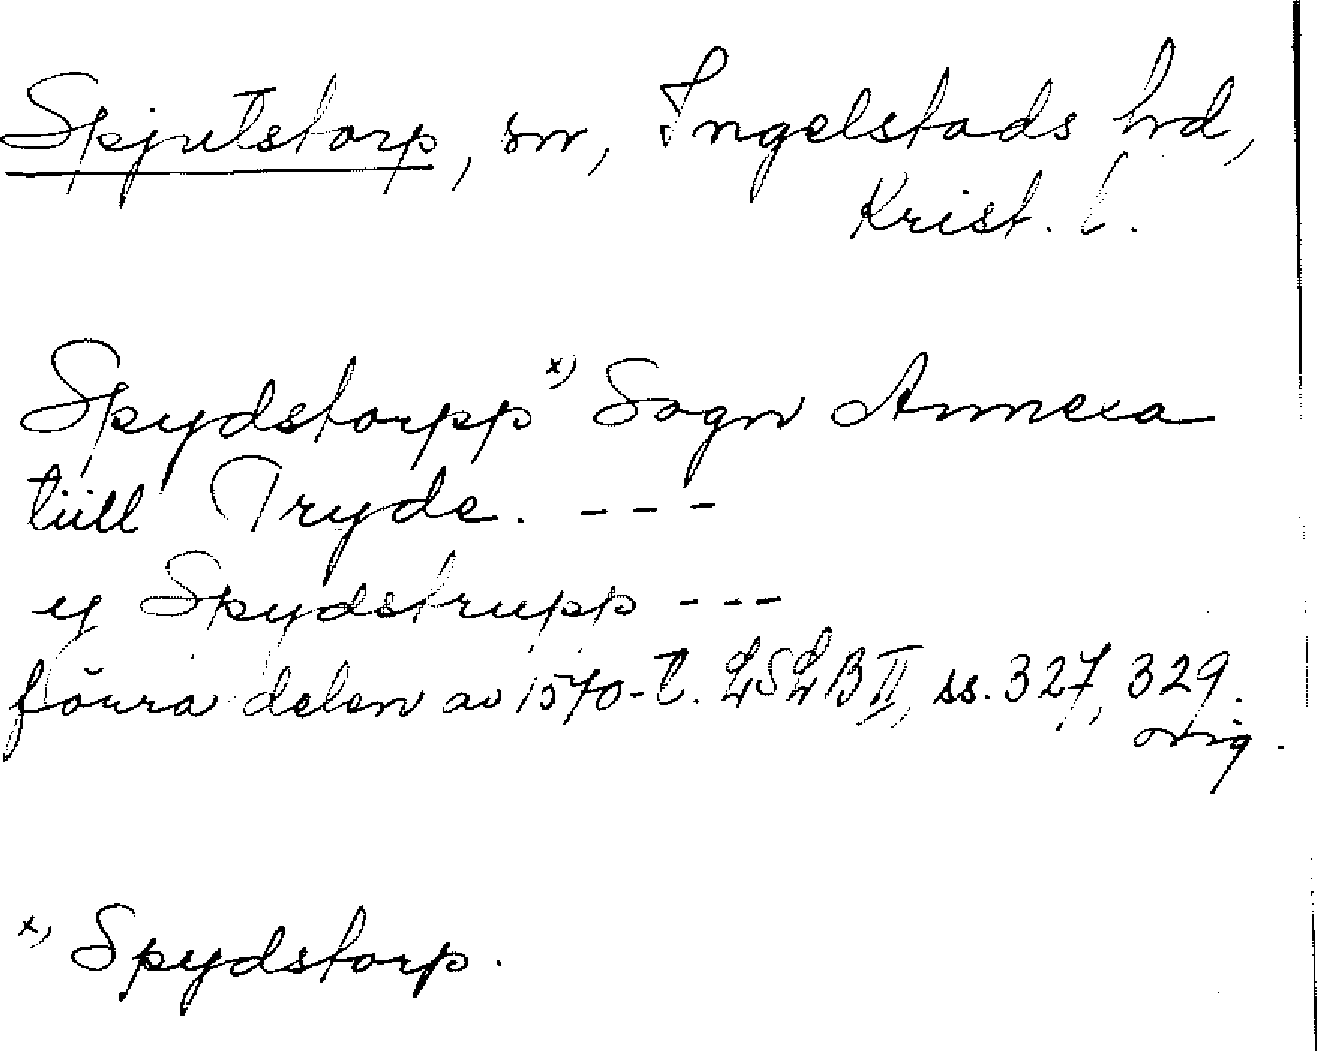 Spjutstorp, sn, Ingelstads hrd,
Krist. l.
Spydstorpp x) Sogn Annexa
tiill Tryde. ---
ij Spydstrupp ---
förra delen av 1570-t. LSLB II, ss. 327, 329.
orig.
x) Spydstorp.